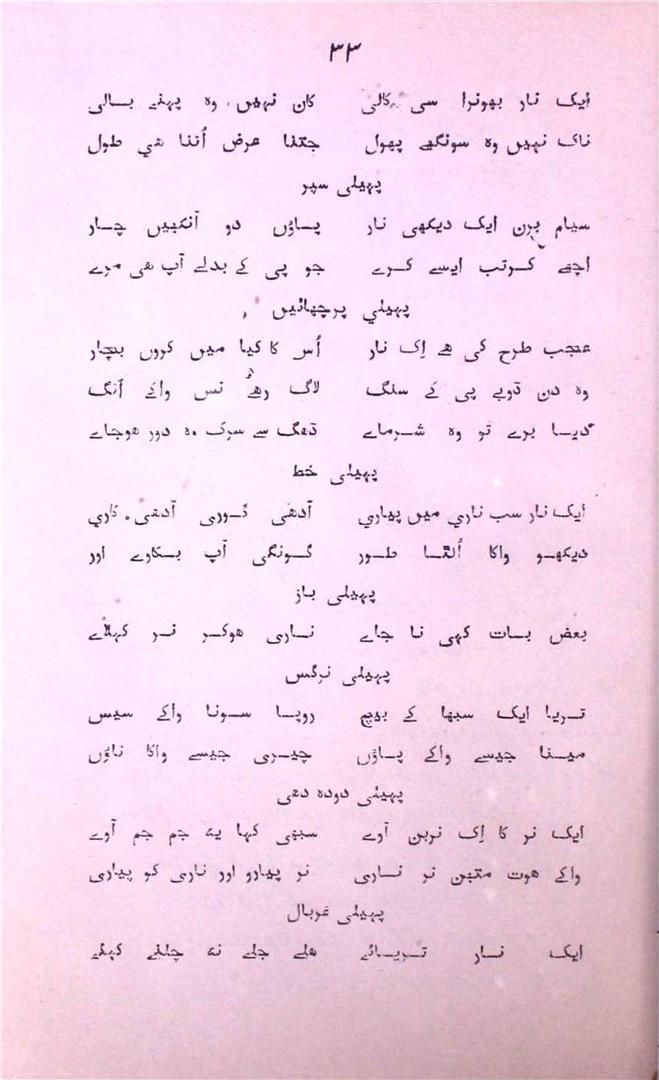 ۳۳
ایک نار بھونرا سی کالی کان نہیں وہ پہنے بالی
ناک نہیں وہ سونگھے پھول جتنا عرض اُتنا ھی طول
پہیلی سپر
سیام برن ایک دیکھی نار پاؤں دو آنکھیں چار
اچھے کرتب ایسے کرے جو پی کے بدلے آپ ھی مرے
پہیلی پرچھائیں
عجب طرح کی ھے اِک نار اُس کا کیا میں کروں بچار
وہ دن ڈوبے پی کے سنگ لاگ رھے نس واکے انگ
دیا برے تو وہ شرماے ڈھگ سے سرک وہ دور ھوجاے
پہیلی خط
ایک نار سب ناری میں پیاری آدھی گوری آدھی کاری
دیکھو واکا اُلٹا طور گونگی آپ بکاوے اور
پہیلی باز
بعض بات کہی نا جاے ناری ھوکر نر کہلاے
پہیلی نرگس
تریا ایک سبھا کے بیچ روپا سونا واکے سیس
مینا جیسے واکے پاؤں چیری جیسے واکا ناؤں
پہیلی دودہ دھی
ایک نر کا اِک نربن آوے سبھی کہا یہ جم جم آوے
واکے ھوت نر ناری نر پیارو اور ناری کو پیاری
پہیلی غربال
ایک نار تریائے ھلے جلے نہ چلنے کہئے